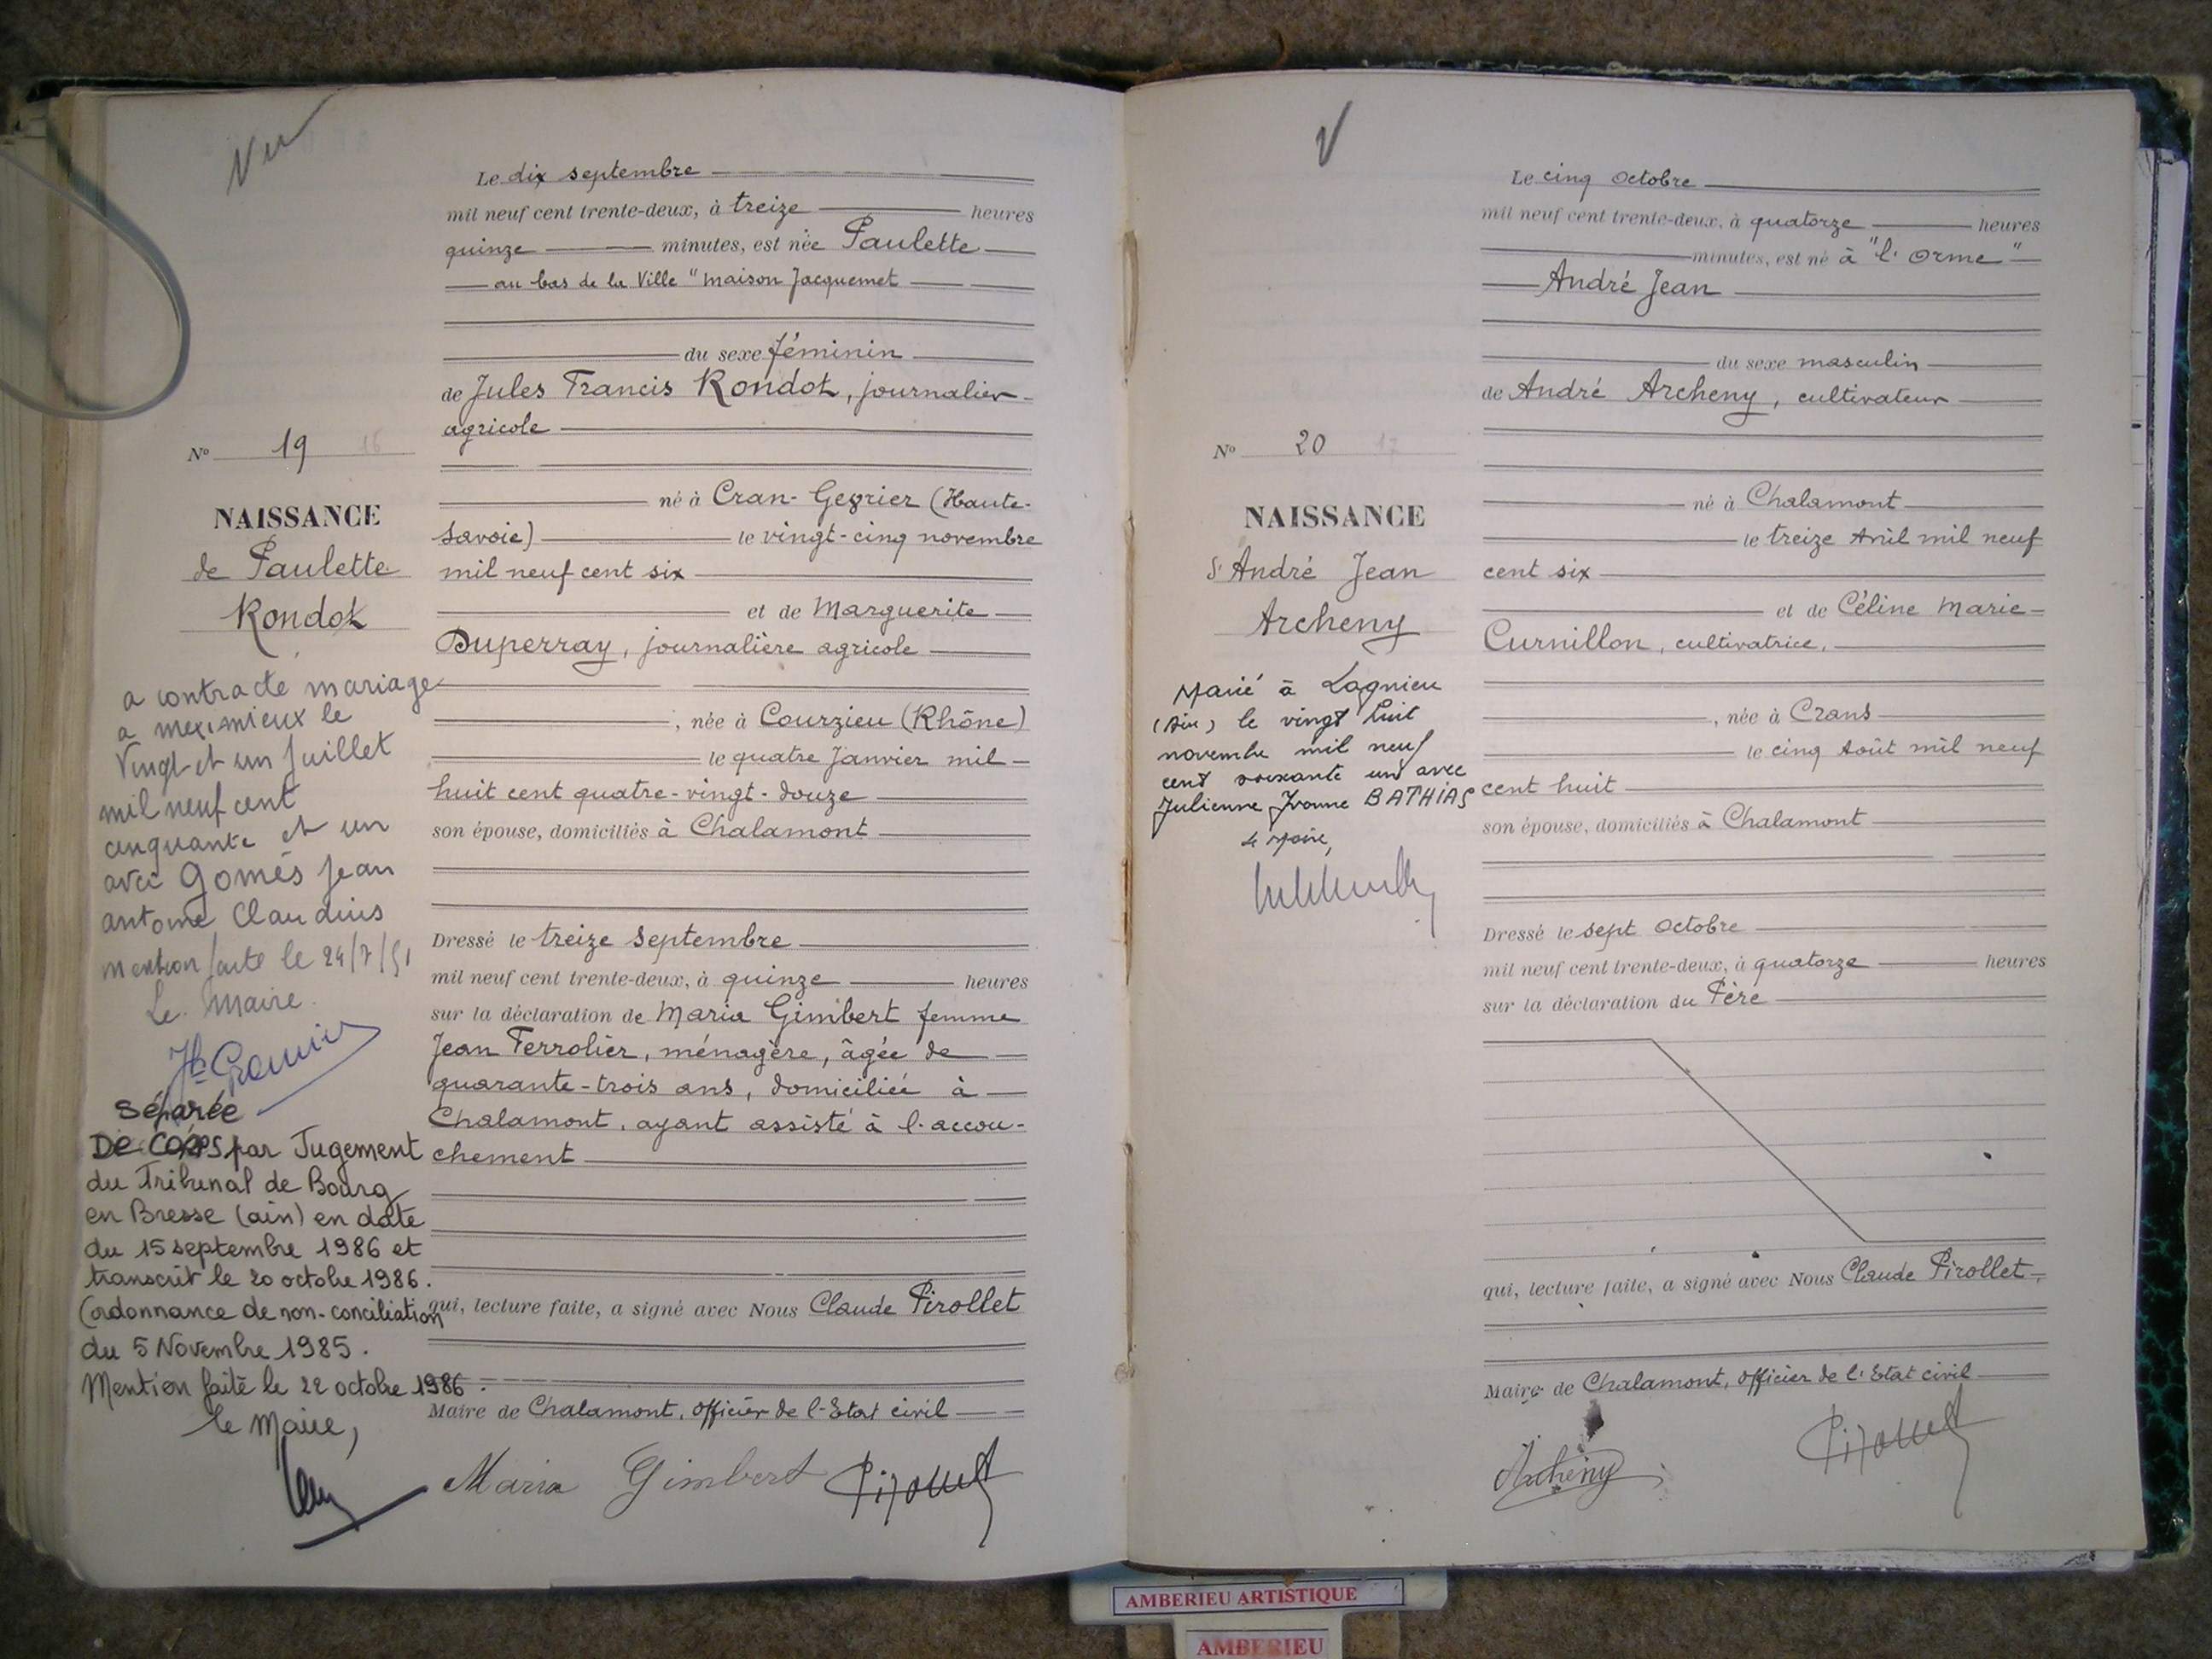 Vu
Le dix septembre
mil neuf cent trente-deux, à treize heures
quinze minutes, est née Paulette
au bas de la Ville "maison Jacquemet
du sexe féminin
de Jules Francis Rondot, journalier
agricole
N° 19 16
NAISSANCE
de Paulette
Rondot
né à Cran-Gevrier (Haute-
Savoie) le vingt-cinq novembre
mil neuf cent six
et de Marguerite
Duperray, journalière agricole
, née à Courzieu (Rhône)
le quatre Janvier mil
huit cent quatre-vingt-douze
son épouse, domiciliés à Chalamont
Dressé le treize Septembre
mil neuf cent trente-deux, à quinze heures
sur la déclaration de Maria Gimbert femme
Jean Ferrolier, ménagère, âgée de
quarante-trois ans, domiciliée à
Chalamont, ayant assisté à l'accou-
chement
qui, lecture faite, a signé avec Nous Claude Pirollet
Maire de Chalamont, officier de l'Etat civil
Maria Gimbert Pirollet
a contracté mariage
a meximieux le
Vingt et un Juillet
mil neuf cent
cinquante et un
avec Gomés Jean
antoine Claudius
mention faite le 24/7/51
Le Maire.
Séparée
De Corps par Jugement
du Tribunal de Bourg
en Bresse (ain) en date
du 15 septembre 1986 et
transcrit le 20 octobre 1986.
(ordonnance de non-conciliation
du 5 Novembre 1985.
Mention faite le 22 octobre 1986.
le Maire,
V
Le cinq Octobre
mil neuf cent trente-deux, à quatorze heures
minutes, est né à "l'Orme"
André Jean
du sexe masculin
de André Archeny, cultivateur
N° 20 17
NAISSANCE
d'André Jean
Archeny
né à Chalamont
le treize Avril mil neuf
cent six
et de Céline Marie
Curnillon, cultivatrice,
, née à Crans
le cinq Août mil neuf
cent huit
son épouse, domiciliés à Chalamont
Dressé le sept Octobre
mil neuf cent trente-deux, à quatorze heures
sur la déclaration du Père
qui, lecture faite, a signé avec Nous Claude Pirollet
Maire de Chalamont, officier de l'Etat civil
Archeny Pirollet
Marié à Lagnieu
(Ain) le vingt huit
novembre mil neuf
cent soixante un avec
Julienne Yvonne BATHIAS
Le Maire,
AMBERIEU ARTISTIQUE
AMBERIEU